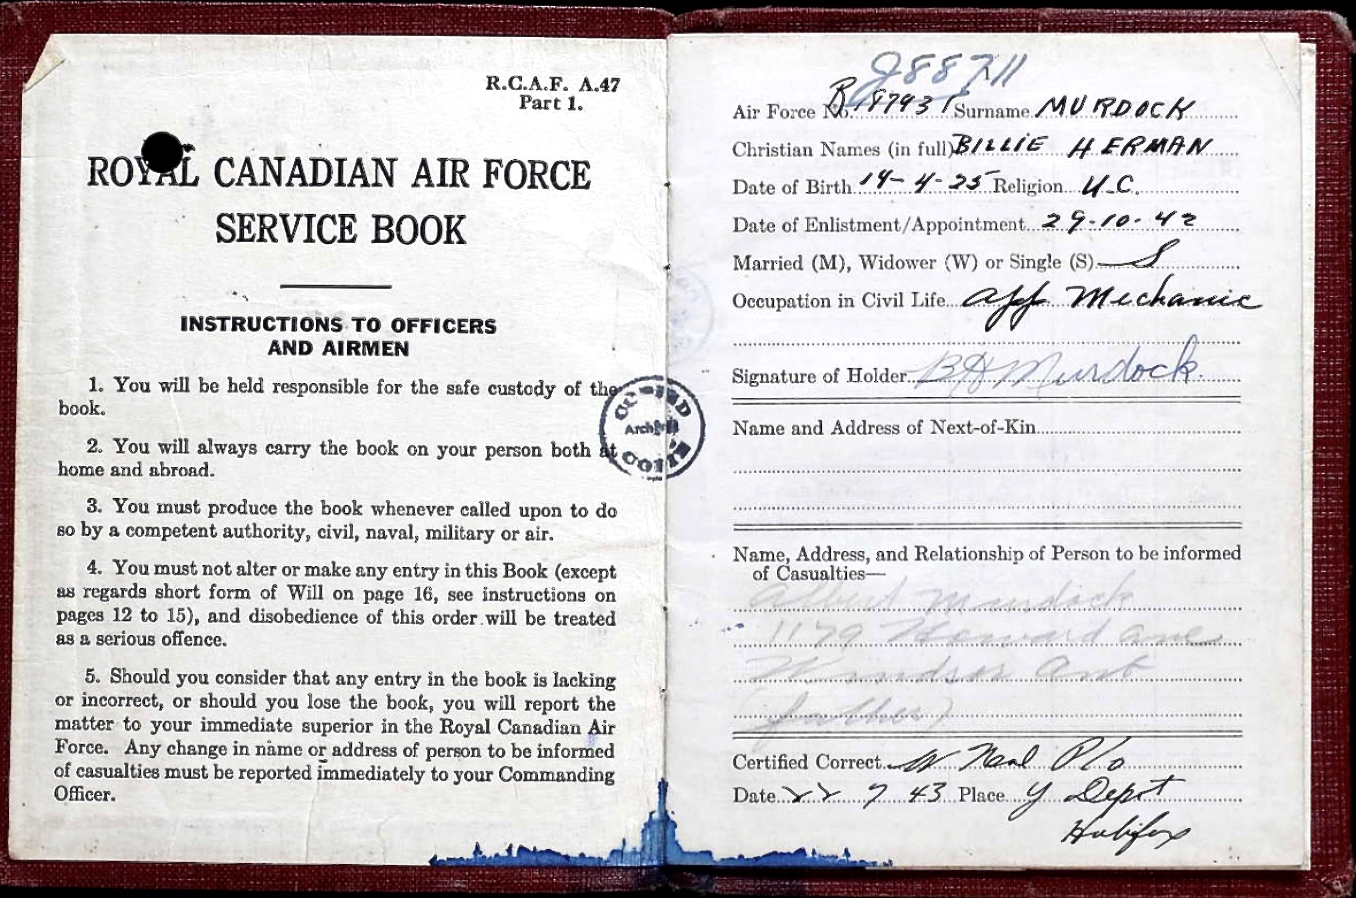 R.C.A.F. A.47
Part 1.
ROYAL CANADIAN AIR FORCE
SERVICE BOOK
INSTRUCTIONS TO OFFICERS
AND AIRMEN
1. You will be held responsible for the safe custody of the
book.
2. You will always carry the book on your person both at
home and abroad.
3. You must produce the book whenever called upon to do
so by a competent authority, civil, naval, military or air.
4. You must not alter or make any entry in this Book (except
as regards short form of Will on page 16, see instructions on
pages 12 to 15), and disobedience of this order will be treated
as a serious offence.
5. Should you consider that any entry in the book is lacking
or incorrect, or should you lose the book, you will report the
matter to your immediate superior in the Royal Canadian Air
Force. Any change in name or address of person to be informed
of casualties must be reported immediately to your Commanding
Officer.
J88711
Air Force No. Surname MURDOCK
Christian Names (in full) BILLIE HERMAN
Date of Birth 14-4-25 Religion U.C.
Date of Enlistment/Appointment 29-10-42
Married (M), Widower (W) or Single (S) S
Occupation in Civil Life App Mechanic
Signature of Holder BH Murdock
Name and Address of Next-of-Kin
Name, Address, and Relationship of Person to be informed
of Casualties—
Albert Murdock
1179 Howard ave
Windsor Ont
(father)
Certified Correct W Neal P/o
Date 22 7 43 Place Y Depot
Halifax